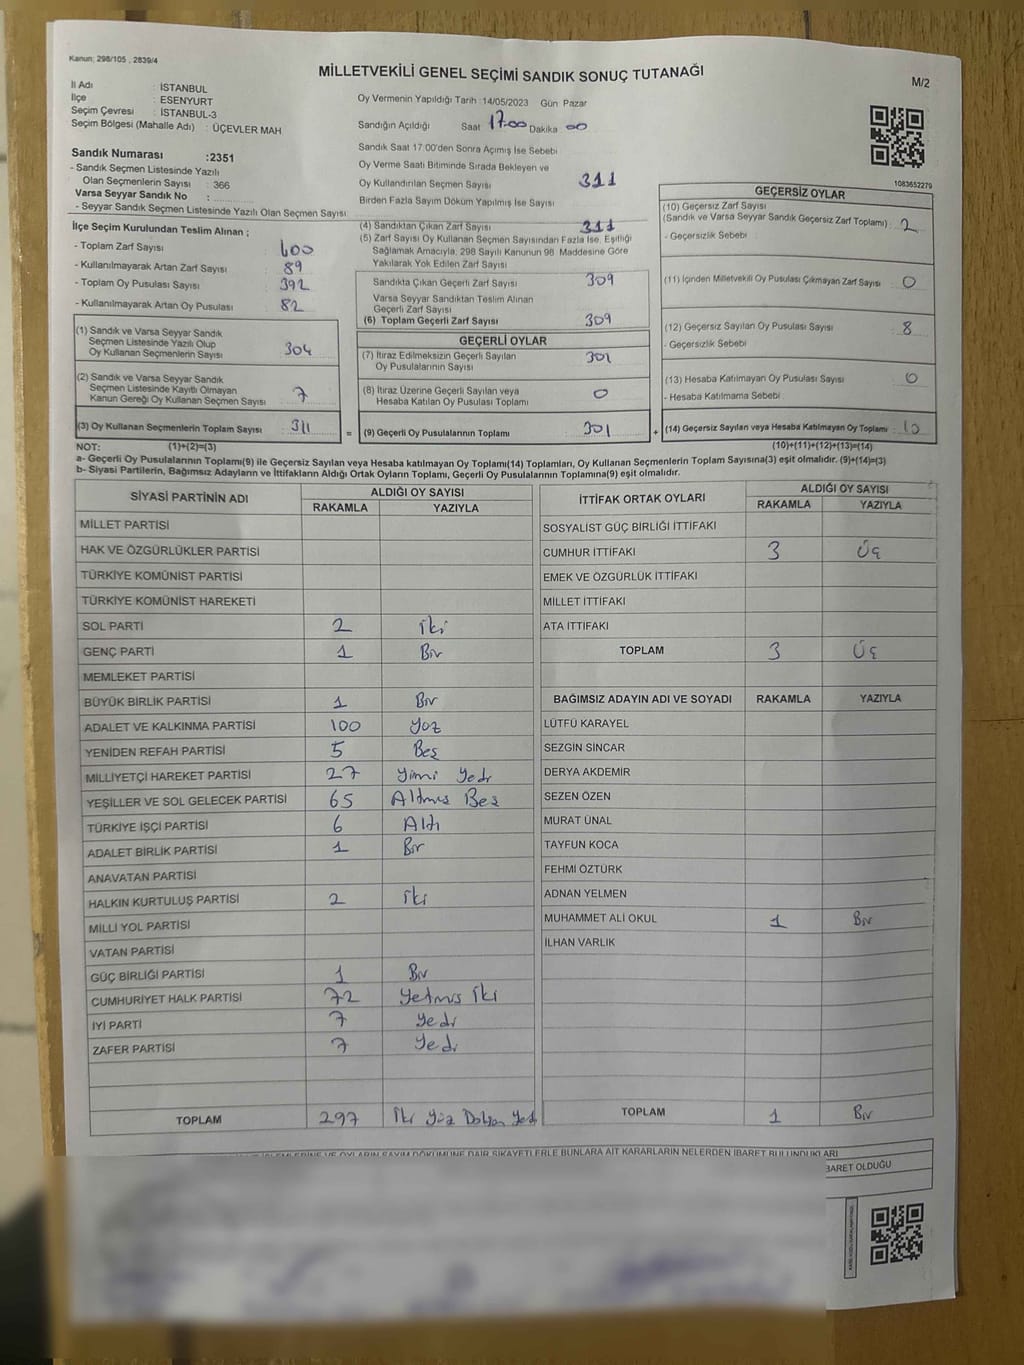 Kanun: 298/105 , 2839/4
MİLLETVEKİLİ GENEL SEÇİMİ SANDIK SONUÇ TUTANAĞI
M/2
İl Adı : İSTANBUL
İlçe : ESENYURT
Seçim Çevresi : İSTANBUL-3
Seçim Bölgesi (Mahalle Adı) : ÜÇEVLER MAH
Sandık Numarası :2351
- Sandık Seçmen Listesinde Yazılı
Olan Seçmenlerin Sayısı : 366
Varsa Seyyar Sandık No :
- Seyyar Sandık Seçmen Listesinde Yazılı Olan Seçmen Sayısı
Oy Vermenin Yapıldığı Tarih :14/05/2023 Gün Pazar
Sandığın Açıldığı Saat 17:00 Dakika 00
Sandık Saat 17.00'den Sonra Açımış İse Sebebi
Oy Verme Saati Bitiminde Sırada Bekleyen ve
Oy Kullandırılan Seçmen Sayısı 311
Birden Fazla Sayım Döküm Yapılmış İse Sayısı
1083652279
İlçe Seçim Kurulundan Teslim Alınan ;
- Toplam Zarf Sayısı : 400
- Kullanılmayarak Artan Zarf Sayısı : 89
- Toplam Oy Pusulası Sayısı : 392
- Kullanılmayarak Artan Oy Pusulası : 82
(1) Sandık ve Varsa Seyyar Sandık
Seçmen Listesinde Yazılı Olup
Oy Kullanan Seçmenlerin Sayısı : 304
(2) Sandık ve Varsa Seyyar Sandık
Seçmen Listesinde Kayıtlı Olmayan
Kanun Gereği Oy Kullanan Seçmen Sayısı : 7
(3) Oy Kullanan Seçmenlerin Toplam Sayısı : 311
(4) Sandıktan Çıkan Zarf Sayısı 311
(5) Zarf Sayısı Oy Kullanan Seçmen Sayısından Fazla İse, Eşitliği
Sağlamak Amacıyla, 298 Sayılı Kanunun 98. Maddesine Göre
Yakılarak Yok Edilen Zarf Sayısı
Sandıkta Çıkan Geçerli Zarf Sayısı 309
Varsa Seyyar Sandıktan Teslim Alınan
Geçerli Zarf Sayısı
(6) Toplam Geçerli Zarf Sayısı 309
GEÇERLİ OYLAR
(7) İtiraz Edilmeksizin Geçerli Sayılan
Oy Pusulalarının Sayısı 301
(8) İtiraz Üzerine Geçerli Sayılan veya
Hesaba Katılan Oy Pusulası Toplamı 0
= (9) Geçerli Oy Pusulalarının Toplamı 301 +
GEÇERSİZ OYLAR
(10) Geçersiz Zarf Sayısı
(Sandık ve Varsa Seyyar Sandık Geçersiz Zarf Toplamı) : 2
- Geçersizlik Sebebi
(11) İçinden Milletvekili Oy Pusulası Çıkmayan Zarf Sayısı 0
(12) Geçersiz Sayılan Oy Pusulası Sayısı 8
- Geçersizlik Sebebi
(13) Hesaba Katılmayan Oy Pusulası Sayısı 0
- Hesaba Katılmama Sebebi
(14) Geçersiz Sayılan veya Hesaba Katılmayan Oy Toplamı 10
NOT: (1)+(2)=(3) (10)+(11)+(12)+(13)=(14)
a- Geçerli Oy Pusulalarının Toplamı(9) ile Geçersiz Sayılan veya Hesaba katılmayan Oy Toplamı(14) Toplamları, Oy Kullanan Seçmenlerin Toplam Sayısına(3) eşit olmalıdır. (9)+(14)=(3)
b- Siyasi Partilerin, Bağımsız Adayların ve İttifakların Aldığı Ortak Oyların Toplamı, Geçerli Oy Pusulalarının Toplamına(9) eşit olmalıdır.
SİYASİ PARTİNİN ADI ALDIĞI OY SAYISI
RAKAMLA YAZIYLA
MİLLET PARTİSİ
HAK VE ÖZGÜRLÜKLER PARTİSİ
TÜRKİYE KOMÜNİST PARTİSİ
TÜRKİYE KOMÜNİST HAREKETİ
SOL PARTİ 2 İki
GENÇ PARTİ 1 Bir
MEMLEKET PARTİSİ
BÜYÜK BİRLİK PARTİSİ 1 Bir
ADALET VE KALKINMA PARTİSİ 100 Yüz
YENİDEN REFAH PARTİSİ 5 Beş
MİLLİYETÇİ HAREKET PARTİSİ 27 Yimi Yedi
YEŞİLLER VE SOL GELECEK PARTİSİ 65 Altmış Beş
TÜRKİYE İŞÇİ PARTİSİ 6 Altı
ADALET BİRLİK PARTİSİ 1 Bir
ANAVATAN PARTİSİ
HALKIN KURTULUŞ PARTİSİ 2 İki
MİLLİ YOL PARTİSİ
VATAN PARTİSİ
GÜÇ BİRLİĞİ PARTİSİ 1 Bir
CUMHURİYET HALK PARTİSİ 72 Yetmiş İki
İYİ PARTİ 7 Yedi
ZAFER PARTİSİ 7 Yedi
TOPLAM 297 İki Yüz Doksan Yedi
İTTİFAK ORTAK OYLARI ALDIĞI OY SAYISI
RAKAMLA YAZIYLA
SOSYALİST GÜÇ BİRLİĞİ İTTİFAKI
CUMHUR İTTİFAKI 3 Üç
EMEK VE ÖZGÜRLÜK İTTİFAKI
MİLLET İTTİFAKI
ATA İTTİFAKI
TOPLAM 3 Üç
BAĞIMSIZ ADAYIN ADI VE SOYADI RAKAMLA YAZIYLA
LÜTFÜ KARAYEL
SEZGİN SİNCAR
DERYA AKDEMİR
SEZEN ÖZEN
MURAT ÜNAL
TAYFUN KOCA
FEHMİ ÖZTÜRK
ADNAN YELMEN
MUHAMMET ALİ OKUL 1 Bir
İLHAN VARLIK
TOPLAM 1 Bir
İŞLEMLERİNE VE OYLARIN SAYIM DÖKÜMÜNE DAİR ŞİKAYETLERLE BUNLARA AİT KARARLARIN NELERDEN İBARET BULUNDUKLARI
BARET OLDUĞU